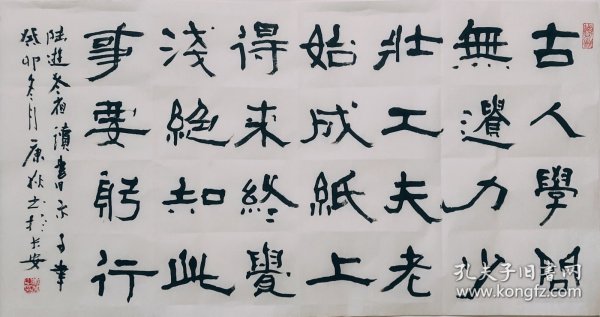 古人學問
無遺力少
壯工夫老
始成紙上
得来終覺
淺絕知此
事要躬行
陸遊冬夜讀書示子聿
癸卯冬月康书於长安
孔夫子旧书网
www.kongfz.com